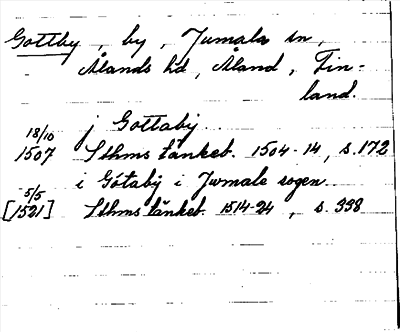 Gottby, by, Jumala sn,
Ålands hd, Åland, Fin-
land.
18/10 j Gottaby
1507 Sthms tänkeb. 1504-14, s. 172
i Gótaby i Jwmale sogen
5/5
[1521] Sthms tänkeb. 1514-24, s. 338